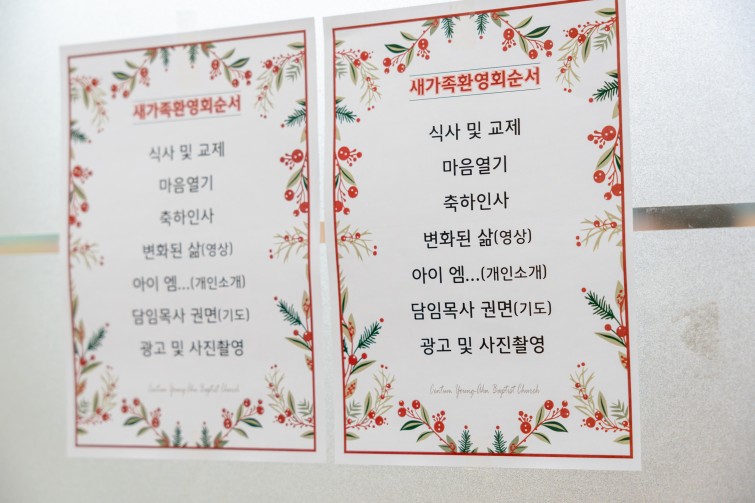 새가족환영회순서
식사 및 교제
마음열기
축하인사
변화된 삶(영상)
아이 엠...(개인소개)
담임목사 권면(기도)
광고 및 사진촬영
새가족환영회순서
식사 및 교제
마음열기
축하인사
변화된 삶(영상)
아이 엠...(개인소개)
담임목사 권면(기도)
광고 및 사진촬영
Baptist Church